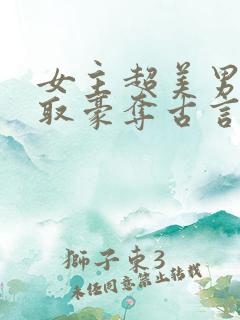 女主超美男
取豪夺古言
獅子東3
未经同意禁止转载